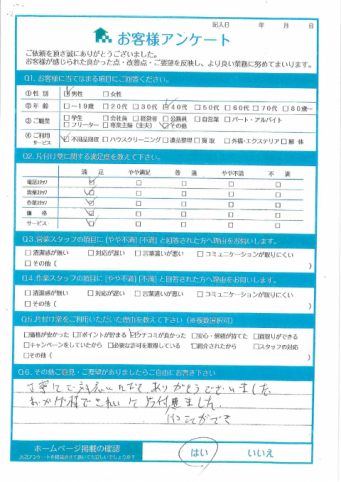 記入日 年 月 日
お客様アンケート
ご依頼を頂き誠にありがとうございました。
お客様が感じられた良かった点・改善点・ご要望を反映し、より良い業務に努めてまいります。
Q1. お客様に当てはまる項目にご回答ください。
①性 別 ☑男性 □女性
②年 齢 □～19歳 □20代 □30代 ☑40代 □50代 □60代 □70代 □80歳～
③ご職業 □学生 □会社員 □経営者 □公務員 □自営業 □パート・アルバイト
□フリーター □専業主婦(主夫) ☑その他
④ご利用サービス ☑不用品回収 □ハウスクリーニング □遺品整理 □買取 □外構・エクステリア □解体
Q2. 片付け業に関する満足度を教えて下さい。
満足 やや満足 普通 やや不満 不満
電話スタッフ ☑ □ □ □ □
営業スタッフ ☑ □ □ □ □
作業スタッフ ☑ □ □ □ □
価格 ☑ □ □ □ □
サービス ☑ □ □ □ □
Q3. 営業スタッフの項目に[やや不満][不満]と回答された方へ理由をお伺いします。
□清潔感が無い □対応が遅い □言葉遣いが悪い □コミュニケーションが取りにくい
□その他( )
Q4. 作業スタッフの項目に[やや不満][不満]と回答された方へ理由をお伺いします。
□清潔感が無い □対応が遅い □言葉遣いが悪い □コミュニケーションが取りにくい
□その他( )
Q5. 片付け業をご利用いただいた理由を教えて下さい(※複数選択可)
□価格が安かった □ポイントが貯まる ☑クチコミが良かった □安心・信頼が持てた □買取りができる
□キャンペーンをしていたから □必要な許可を取得している □紹介されたから □スタッフの対応
□その他( )
Q6. その他ご意見・ご要望がありましたらご自由にお書き下さい
丁寧にご対応いただき、ありがとうございました。
おかげ様できれいに片付
ことができ
ました。
ホームページ掲載の確認
はい いいえ